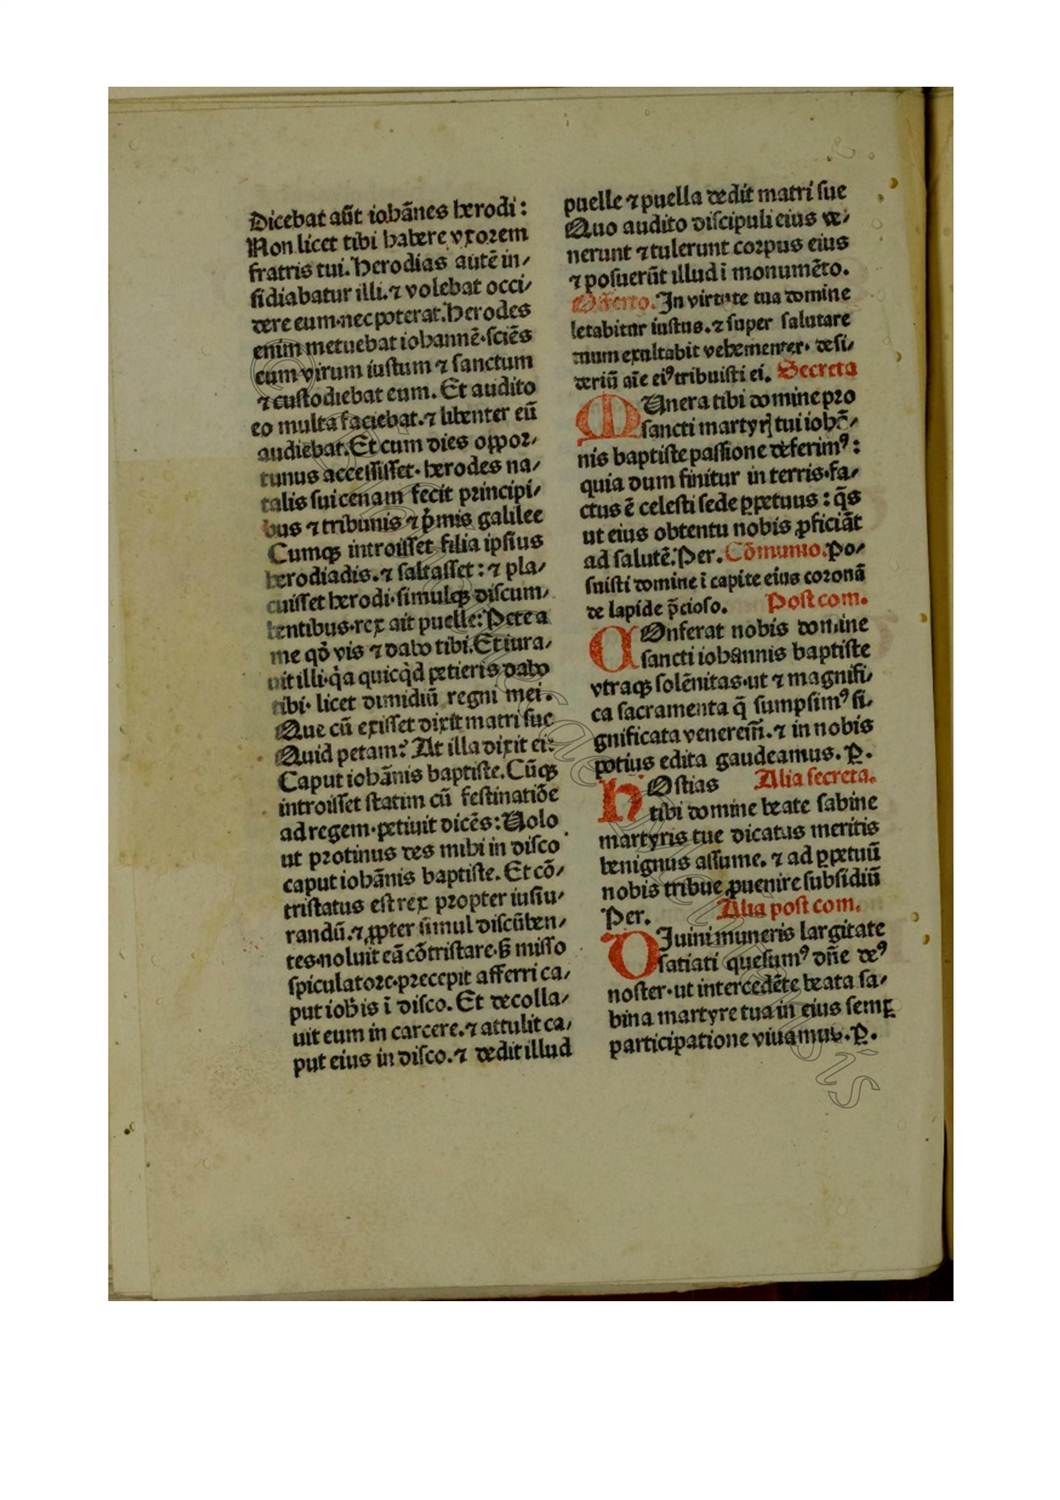 Dicebat aūt iohānes herodi:
Non licet tibi habere vxorem
fratris tui. Herodias autē in⸗
sidiabatur illi. ⁊ volebat occi⸗
dere eum·nec poterat. Herodes
enim metuebat iohannē·sciēs
eum virum iustum ⁊ sanctum
⁊ custodiebat eum. Et audito
eo multa faciebat. ⁊ libenter eū
audiebat. Et cum dies oppor⸗
tunus accessisset· herodes na⸗
talis sui cenam fecit principi⸗
bus ⁊ tribunis ⁊ p̄mis galilee
Cumqꝫ introisset filia ipsius
herodiadis. ⁊ saltasset: ⁊ pla⸗
cuisset herodi·simulqꝫ discum⸗
bentibus·rex ait puelle: Pete a
me qd̄ vis ⁊ dabo tibi. Et iura⸗
uit illi·q̄a quicq̄d petieris dabo
tibi· licet dimidiū regni mei.
Que cū exisset dixit matri sue
Quid petam? At illa dixit ei:
Caput iohānis baptiste. Cūqꝫ
introisset statim cū festinatiōe
ad regem·petiuit dicēs: Uolo
ut protinus des mihi in disco
caput iohānis baptiste. Et cō⸗
tristatus est rex propter iusiu⸗
randū. ⁊ ꝓpter simul discūben⸗
tes·noluit eā cōtristare·sꝫ misso
spiculatore·precepit afferri ca⸗
put ioh̄is ī disco. Et decolla⸗
uit eum in carcere. ⁊ attulit ca⸗
put eius in disco. ⁊ dedit illud
puelle ⁊ puella dedit matri sue
Quo audito discipuli eius ve⸗
nerunt ⁊ tulerunt corpus eius
⁊ posuerūt illud ī monumēto.
Offerto. In virtute tua domine
letabitur iustus. ⁊ super salutare
tuum exultabit vehementer· desi⸗
deriū aīe eiꝰ tribuisti ei. Secreta
MUnera tibi domine pro
sancti martyrꝭ tui iohā⸗
nis baptiste passione deferimꝰ:
quia dum finitur in terris·fa⸗
ctus ē celesti sede ꝑpetuus: q̄s
ut eius obtentu nobis ꝓficiāt
ad salutē. Per. Cōmunio. Po⸗
suisti domine ī capite eius coronā
de lapide p̄cioso. Post com.
COnferat nobis domine
sancti iohannis baptiste
vtraqꝫ solēnitas·ut ⁊ magnifi⸗
ca sacramenta q̄ sumpsimꝰ si⸗
gnificata veneremᷣ. ⁊ in nobis
potius edita gaudeamus. P.
HOstias Alia secreta.
tibi domine beate sabine
martyris tue dicatas meritis
benignus assume. ⁊ ad ꝑpetuū
nobis tribue ꝓuenire subsidiū
Per. Alia post com.
DIuini muneris largitate
satiati quesumꝰ dn̄e deꝰ
noster·ut intercedēte beata sa⸗
bina martyre tua in eius semꝑ
participatione viuamus. P.